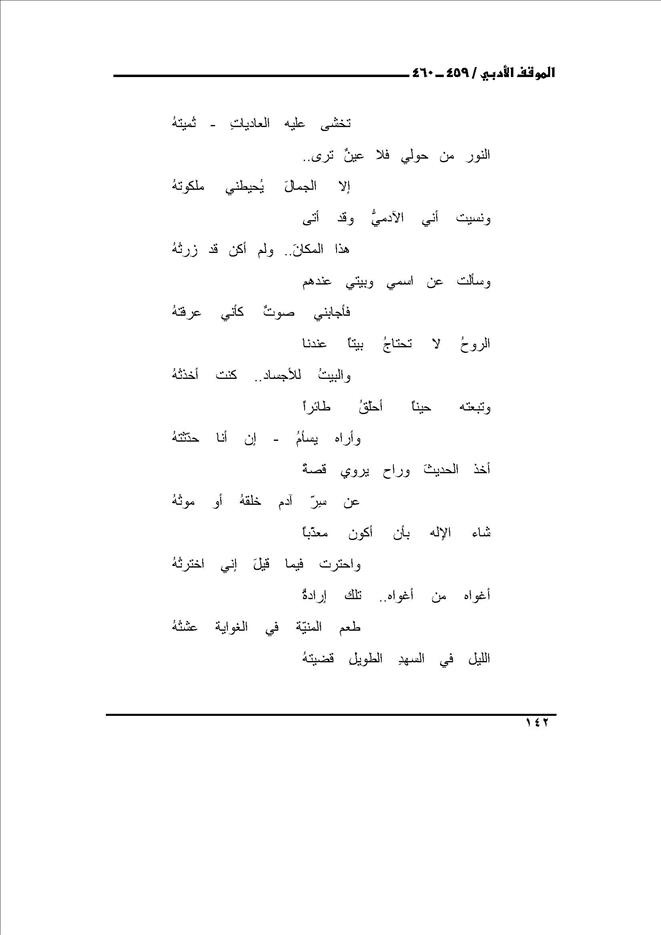 الموقف الأدبي / ٤٥٩ ــ ٤٦٠
تخشى عليه العادياتِ - تُميتهُ
النور من حولي فلا عينٌ ترى..
إلا الجمالَ يُحيطني ملكوتهُ
ونسيت أني الآدميُّ وقد أتى
هذا المكانَ.. ولم أكن قد زرتُهُ
وسألت عن اسمي وبيتي عندهم
فأجابني صوتٌ كأني عرفتهُ
الروحُ لا تحتاجُ بيتاً عندنا
والبيتُ للأجساد.. كنت أخذتُهُ
وتبعته حيناً أحلّقُ طائراً
وأراه يسأمُ - إن أنا حدّثتهُ
أخذ الحديثَ وراح يروي قصةً
عن سِرّ آدم خلقهُ أو موتُهُ
شاء الإله بأن أكون معذّباً
واحترت فيما قيلَ إني اخترتُهُ
أغواه من أغواه.. تلك إرادةٌ
طعم المنيّة في الغواية عشتُهُ
الليل في السهدِ الطويل قضيتهُ
١٤٢